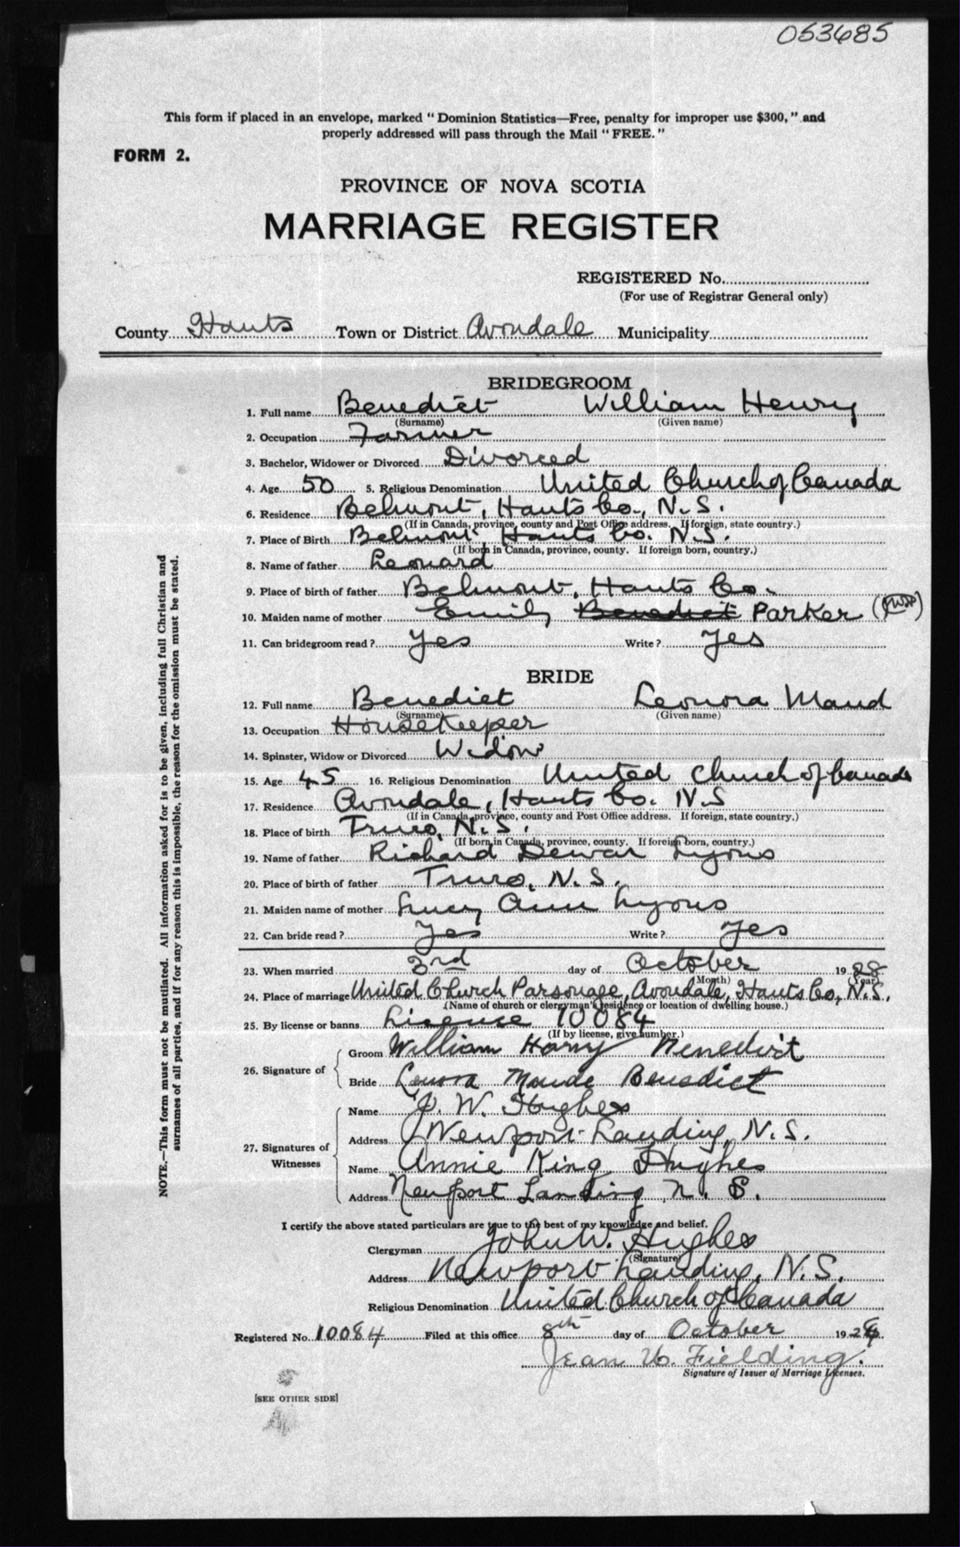 053685
This form if placed in an envelope, marked "Dominion Statistics—Free, penalty for improper use $300," and
properly addressed will pass through the Mail "FREE."
FORM 2.
PROVINCE OF NOVA SCOTIA
MARRIAGE REGISTER
REGISTERED No.
(For use of Registrar General only)
County Hants Town or District Avondale Municipality
BRIDEGROOM
1. Full name Benedict William Henry
(Surname) (Given name)
2. Occupation Farmer
3. Bachelor, Widower or Divorced Divorced
4. Age 50 5. Religious Denomination United Church of Canada
6. Residence Belmont, Hants Co., N.S.
(If in Canada, province, county and Post Office address. If foreign, state country.)
7. Place of Birth Belmont Hants Co. N.S.
(If born in Canada, province, county. If foreign born, country.)
8. Name of father Leonard
9. Place of birth of father Belmont, Hants Co.
10. Maiden name of mother Emily Benedict Parker
11. Can bridegroom read? Yes Write? Yes
BRIDE
12. Full name Benedict Leonora Maud
(Surname) (Given name)
13. Occupation Housekeeper
14. Spinster, Widow or Divorced Widow
15. Age 45 16. Religious Denomination United Church of Canada
17. Residence Avondale, Hants Co. N.S
(If in Canada, province, county and Post Office address. If foreign, state country.)
18. Place of birth Truro, N.S.
(If born in Canada, province, county. If foreign born, country.)
19. Name of father Richard Dewar Lyons
20. Place of birth of father Truro, N.S.
21. Maiden name of mother Lucy Ann Lyons
22. Can bride read? Yes Write? Yes
23. When married 3rd day of October 1928
(Month) (Year)
24. Place of marriage United Church Parsonage, Avondale, Hants Co, N.S.
(Name of church or clergyman's residence or location of dwelling house.)
25. By license or banns License 10084
(If by license, give number.)
26. Signature of Groom William Harny Benedict
Bride Lenora Maude Benedict
27. Signatures of Witnesses Name J. W. Hughes
Address Newport Landing, N.S.
Name Annie King Hughes
Address Newport Landing N. S.
I certify the above stated particulars are true to the best of my knowledge and belief.
Clergyman John W. Hughes
(Signature)
Address Newport Landing, N.S.
Religious Denomination United Church of Canada
Registered No. 10084 Filed at this office 8th day of October 1928
Jean Fielding
Signature of Issuer of Marriage Licenses.
[SEE OTHER SIDE]
NOTE.—This form must not be mutilated. All information asked for is to be given, including full Christian and
surnames of all parties, and if for any reason this is impossible, the reason for the omission must be stated.